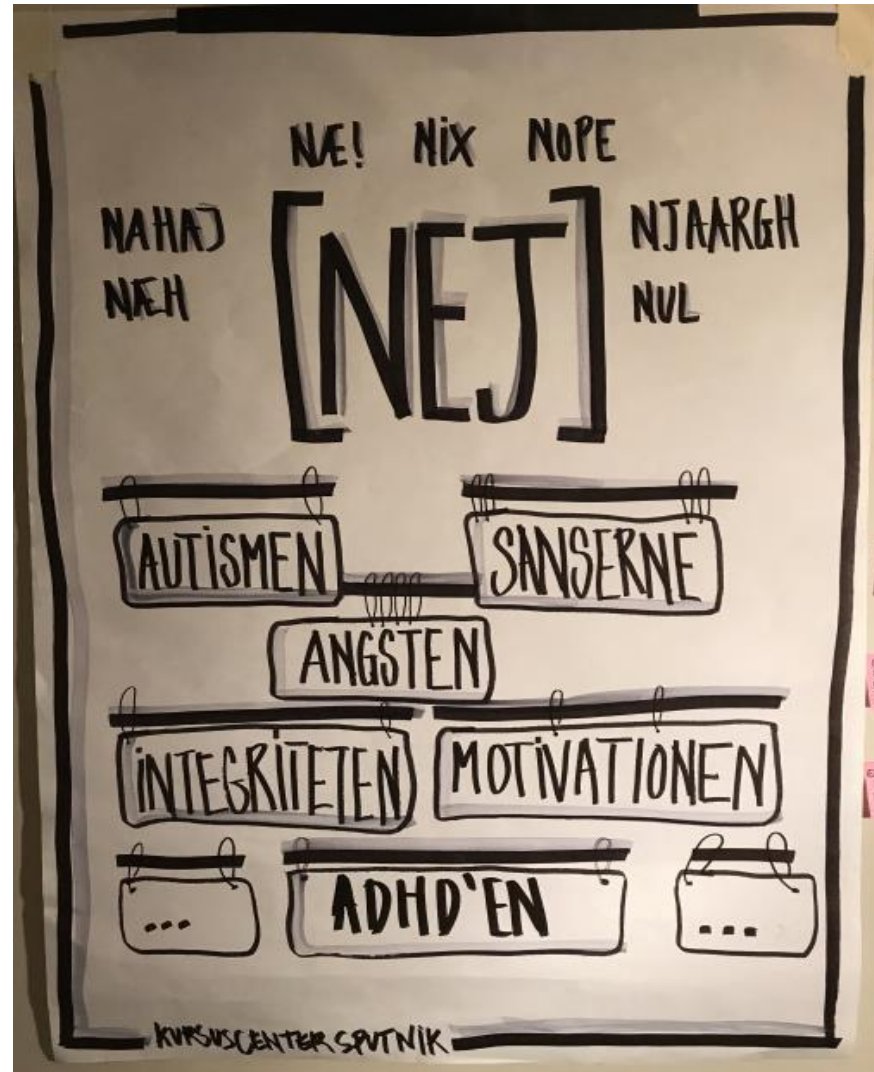 NÆ! NiX NOPE
NAHAJ [NEJ] NJAARGH
NÆH NUL
AUTiSMEN SANSERNE
ANGSTEN
iNTEGRiTETEN MOTiVATIONEN
... ADHD'EN ...
KURSUSCENTER SPUTNIK